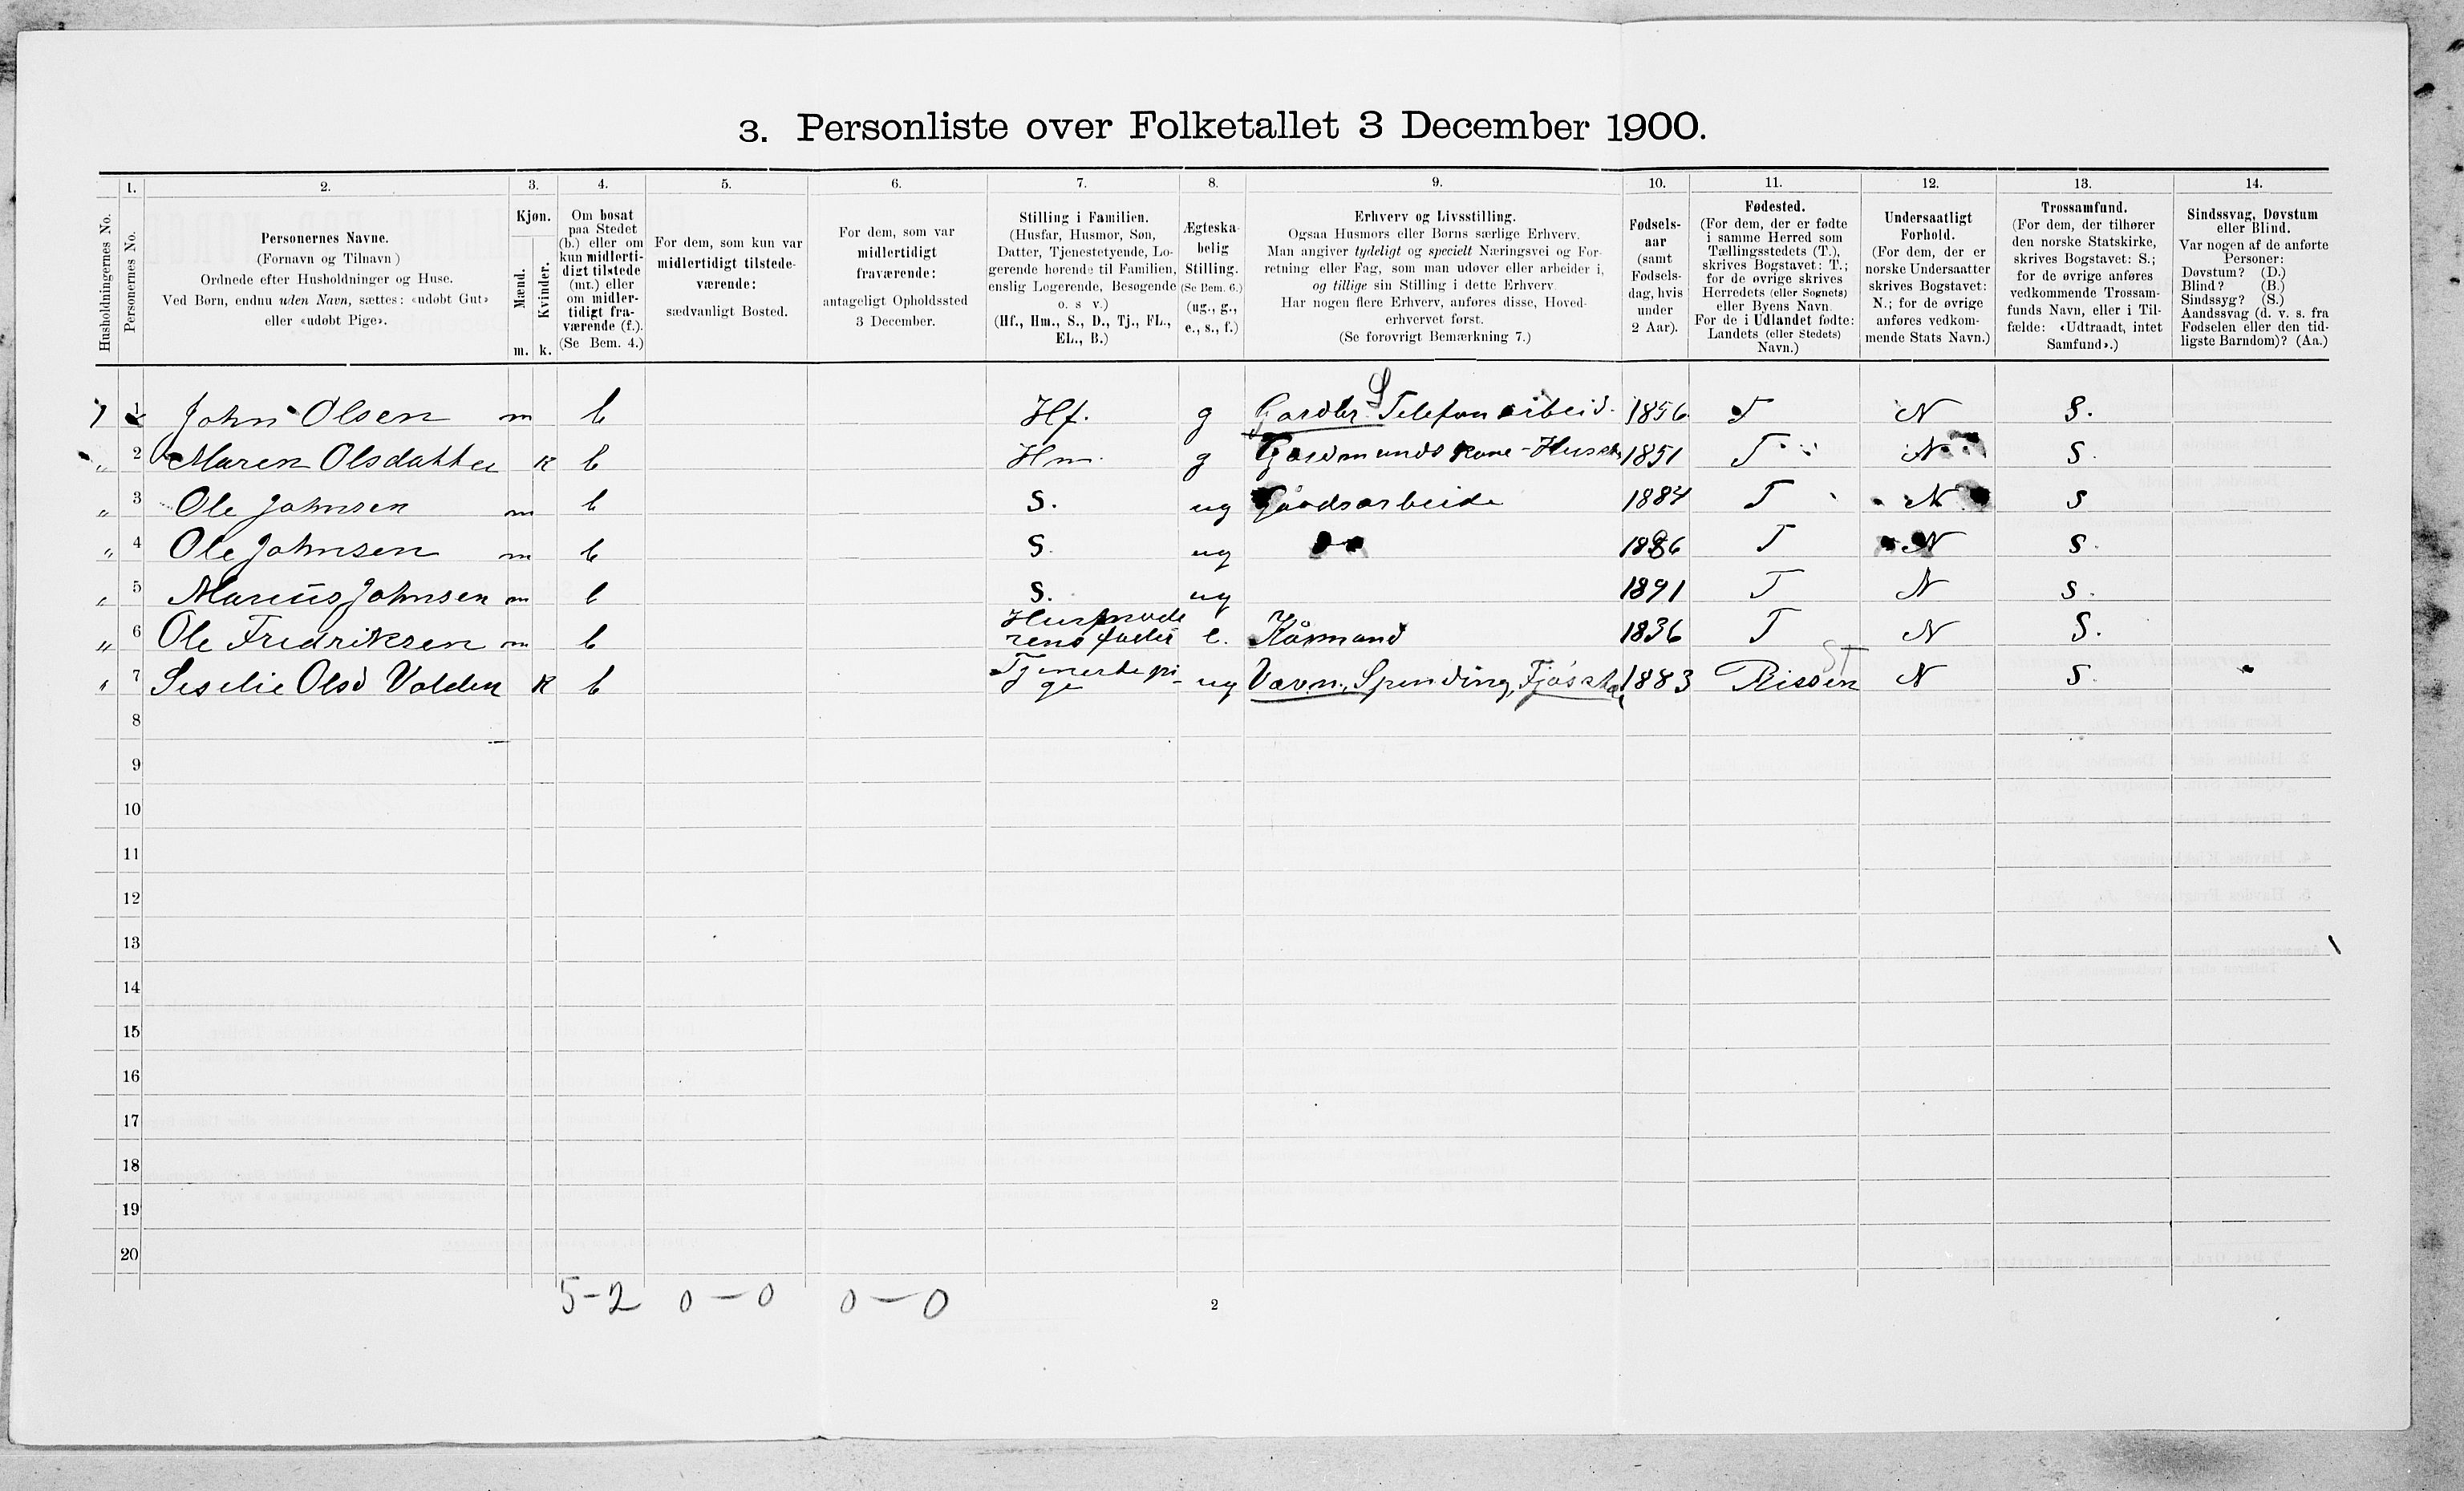 3. Personliste over Folketallet 3 December 1900.
Husholdningernes No.
1.
Personernes No.
2.
Personernes Navne.
(Fornavn og Tilnavn)
Ordnede efter Husholdninger og Huse.
Ved Børn, endnu uden Navn, sættes: «udøbt Gut»
eller «udøbt Pige».
3.
Kjøn.
Mænd.
Kvinder.
m. k.
4.
Om bosat
paa Stedet
(b.) eller om
kun midlerti-
digt tilstede
(mt.) eller
om midler-
tidigt fra-
værende (f.).
(Se Bem. 4.)
5.
For dem, som kun var
midlertidigt tilstede-
værende:
sædvanligt Bosted.
6.
For dem, som var
midlertidigt
fraværende:
antageligt Opholdssted
3 December.
7.
Stilling i Familien.
(Husfar, Husmor, Søn,
Datter, Tjenestetyende, Lo-
gerende hørende til Familien,
enslig Logerende, Besøgende
o. s v.)
(Hf., Hm., S., D., Tj., FL.,
EL., B.)
8.
Ægteska-
belig
Stilling.
(Se Bem. 6.)
(ug., g.,
e., s., f.)
9.
Erhverv og Livsstilling.
Ogsaa Husmors eller Børns særlige Erhverv.
Man angiver tydeligt og specielt Næringsvei og For-
retning eller Fag, som man udøver eller arbeider i,
og tillige sin Stilling i dette Erhverv.
Har nogen flere Erhverv, anføres disse, Hoved-
erhvervet først.
(Se forøvrigt Bemærkning 7.)
10.
Fødsels-
aar
(samt
Fødsels-
dag, hvis
under
2 Aar).
11.
Fødested.
(For dem, der er fødte
i samme Herred som
Tællingsstedets (T.),
skrives Bogstavet: T.;
for de øvrige skrives
Herredets (eller Sognets)
eller Byens Navn.
For de i Udlandet fødte:
Landets (eller Stedets)
Navn.)
12.
Undersaatligt
Forhold.
(For dem, der er
norske Undersaatter
skrives Bogstavet:
N.; for de øvrige
anføres vedkom-
mende Stats Navn.)
13.
Trossamfund.
(For dem, der tilhører
den norske Statskirke,
skrives Bogstavet: S.;
for de øvrige anføres
vedkommende Trossam-
funds Navn, eller i Til-
fælde: «Udtraadt, intet
Samfund».)
14.
Sindssvag, Døvstum
eller Blind.
Var nogen af de anførte
Personer:
Døvstum? (D.)
Blind? (B.)
Sindssyg? (S.)
Aandssvag (d. v. s. fra
Fødselen eller den tid-
ligste Barndom)? (Aa.)
1 1 John Olsen m b Hf. g Gardbr. S Telefonarbeid. 1856 T N S.
" 2 Maren Olsdatter K b Hm. g Gardmands Kone - 1851 T N S.
" 3 Ole Johnsen m b S. ug Gaardsarbeide 1884 T N S
" 4 Ole Johnsen m b S. ug 1886 T N S.
" 5 Marius Johnsen m b S. ug 1891 T N S.
" 6 Ole Fredriksen m b rens fader e. Kårmand 1836 T N S.
" 7 Seselie Olsd Valden K b Tjenestepi- ge ug Vævn., Spinding, 1883 Rissen ST N S.
8
9
10
11
12
13
14
15
16
17
18
19
20
5-2 0-0 0-0
2